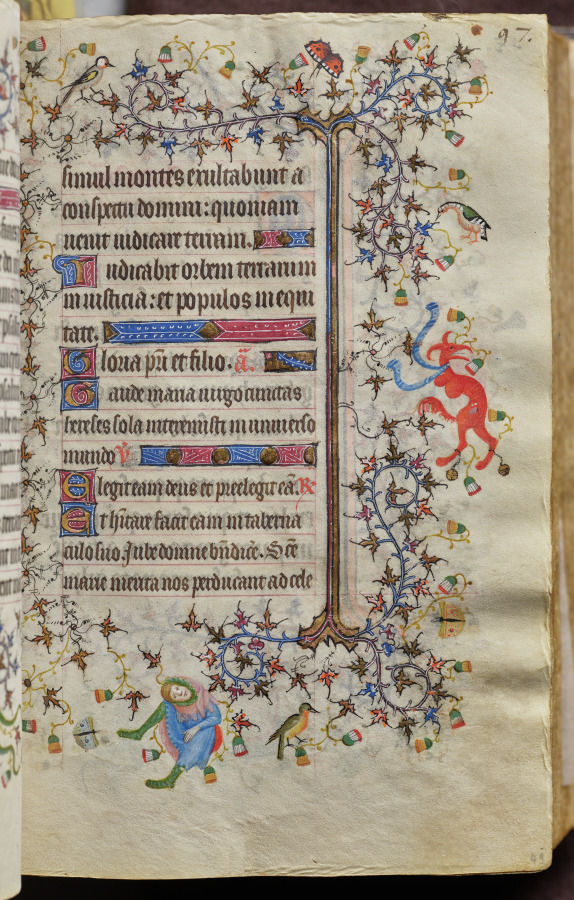 97.
simul montes exultabunt a
conspectu domini: quoniam
uenit iudicare terram.
Iudicabit orbem terrarum
in iusticia: et populos in equi
tate.
Gloria pri et filio. a.
Gaude maria uirgo cunctas
hereses sola interemisti in uniuerso
mundo V
Elegit eam deus et preelegit ea. R
Et hitare facit eam in taberna
culo suo. Jube domne bndice. Sce
marie merita nos perducant ad cele
49